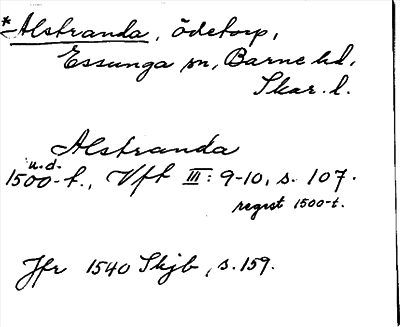 *Alstranda, ödetorp,
Essunga sn, Barne hd,
Skar. l.
Alstranda
u.d.
1500-t., Vft III: 9-10, s. 107.
regest 1500-t.
Jfr 1540 Skjb, s. 159.